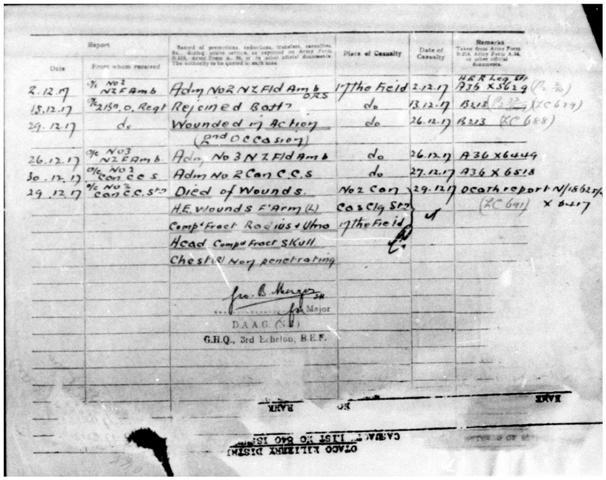 Report
Record of promotions, reductions, transfers, casualties, &c., during active service, as reported on Army Form B.213, Army Form A. 36, or in other official documents. The authority to be quoted in each case.
Place of Casualty
Date of Casualty
Remarks
Taken from Army Form B.213, Army Form A.36, or other official documents.
Date From whom received
H.R.R Leg
2.12.17 O/c No 2 NZF Amb Adm No 2 NZ Fld Amb ORS In the Field 2.12.17 A36 X5629
13.12.17 2 Bn. O. Regt Rejoined Battn do 13.12.17 B213 (LC 679)
29.12.17 do Wounded in Action do 26.12.17 B213 (LC 688)
(2nd Occasion)
26.12.17 O/c No 3 NZF Amb Adm No 3 NZ Fld Amb do 26.12.17 A36 X6449
30.12.17 O/c No 2 Can C.C.S Adm No 2 Can C.C.S do 27.12.17 A36 X6518
29.12.17 O/c No 2 Can C.C. Stn Died of Wounds. No 2 Can 29.12.17 Death report
H.E. Wounds F'Arm (L) Cas Clg Stn (LC 691) X 6417
Comp'd Fract Radius & Ulna In the Field
Head Comp'd Fract Skull
Chest Non penetrating
for Major
D.A.A.G.
G.H.Q., 3rd Echelon, B.E.F.
RANK NO RANK
CASUALTY LIST NO 640
OTAGO MILITARY DISTRI